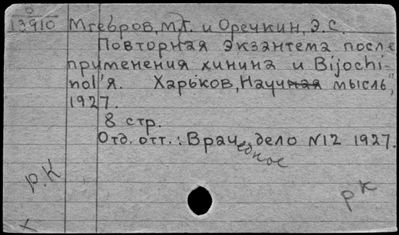 0
13910 Мгебров, М.Г. и Оречкин, Э.С.
Повторная экзантема после
применения хинина и Bijochi-
nol'я. Харьков, „Научная мысль",
1927.
8 стр.
Отд. отт.: Врачебное дело N12 1927.
р.К
рк
x